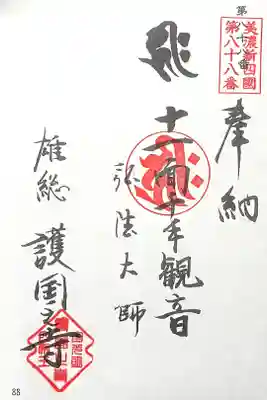 第八十八番
美濃新四國
第八十八番
奉納
十一面千手観音
弘法大師
雄総
護国之寺
88